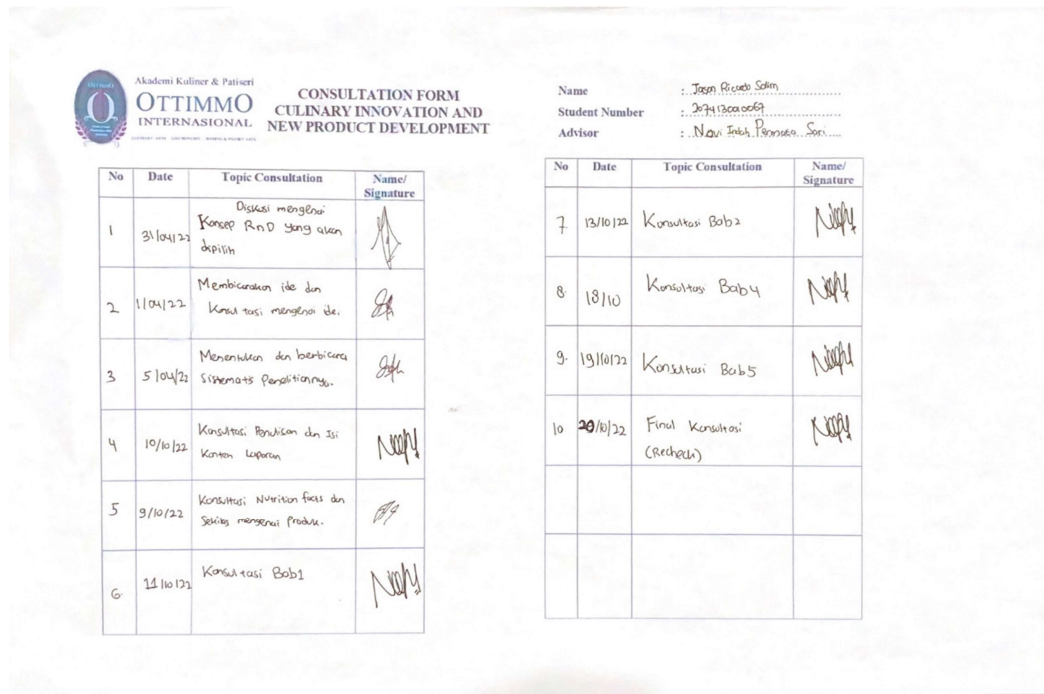 Akademi Kuliner & Patiseri
OTTIMMO
INTERNASIONAL
CONSULTATION FORM
CULINARY INNOVATION AND
NEW PRODUCT DEVELOPMENT
No Date Topic Consultation Name/
Signature
1 31/04/22 Diskusi mengenai
Konsep RnD yang akan
dipilih
2 1/04/22 Membicarakan ide dan
Konsultasi mengenai ide.
3 5/04/22 Menentukan dan berbicara
Sistematis Penelitiannya.
4 10/10/22 Konsultasi Penulisan dan Isi
Konten Laporan
5 9/10/22 Konsultasi Nutrition facts dan
Sekilas mengenai Produk.
6 11/10/22 Konsultasi Bab1
Name : Jason Ricardo Salim
Student Number : 2074130010067
Advisor : Novi Indah Permata Sari
No Date Topic Consultation Name/
Signature
7 13/10/22 Konsultasi Bab2
8. 18/10 Konsultasi Bab4
9. 19/10/22 Konsultasi Bab5
10 20/10/22 Final Konsultasi
(Recheck)